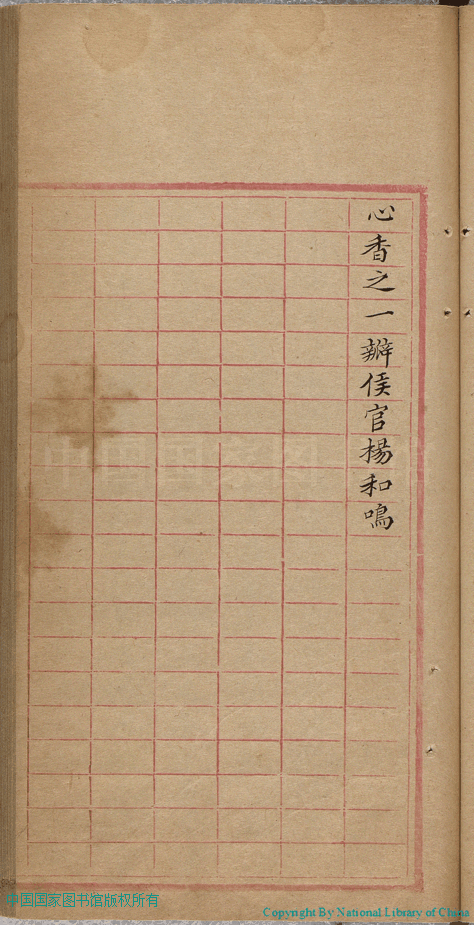 心香之一瓣侯官楊和鳴
中国国家图书馆版权所有
Copyright By National Library of China